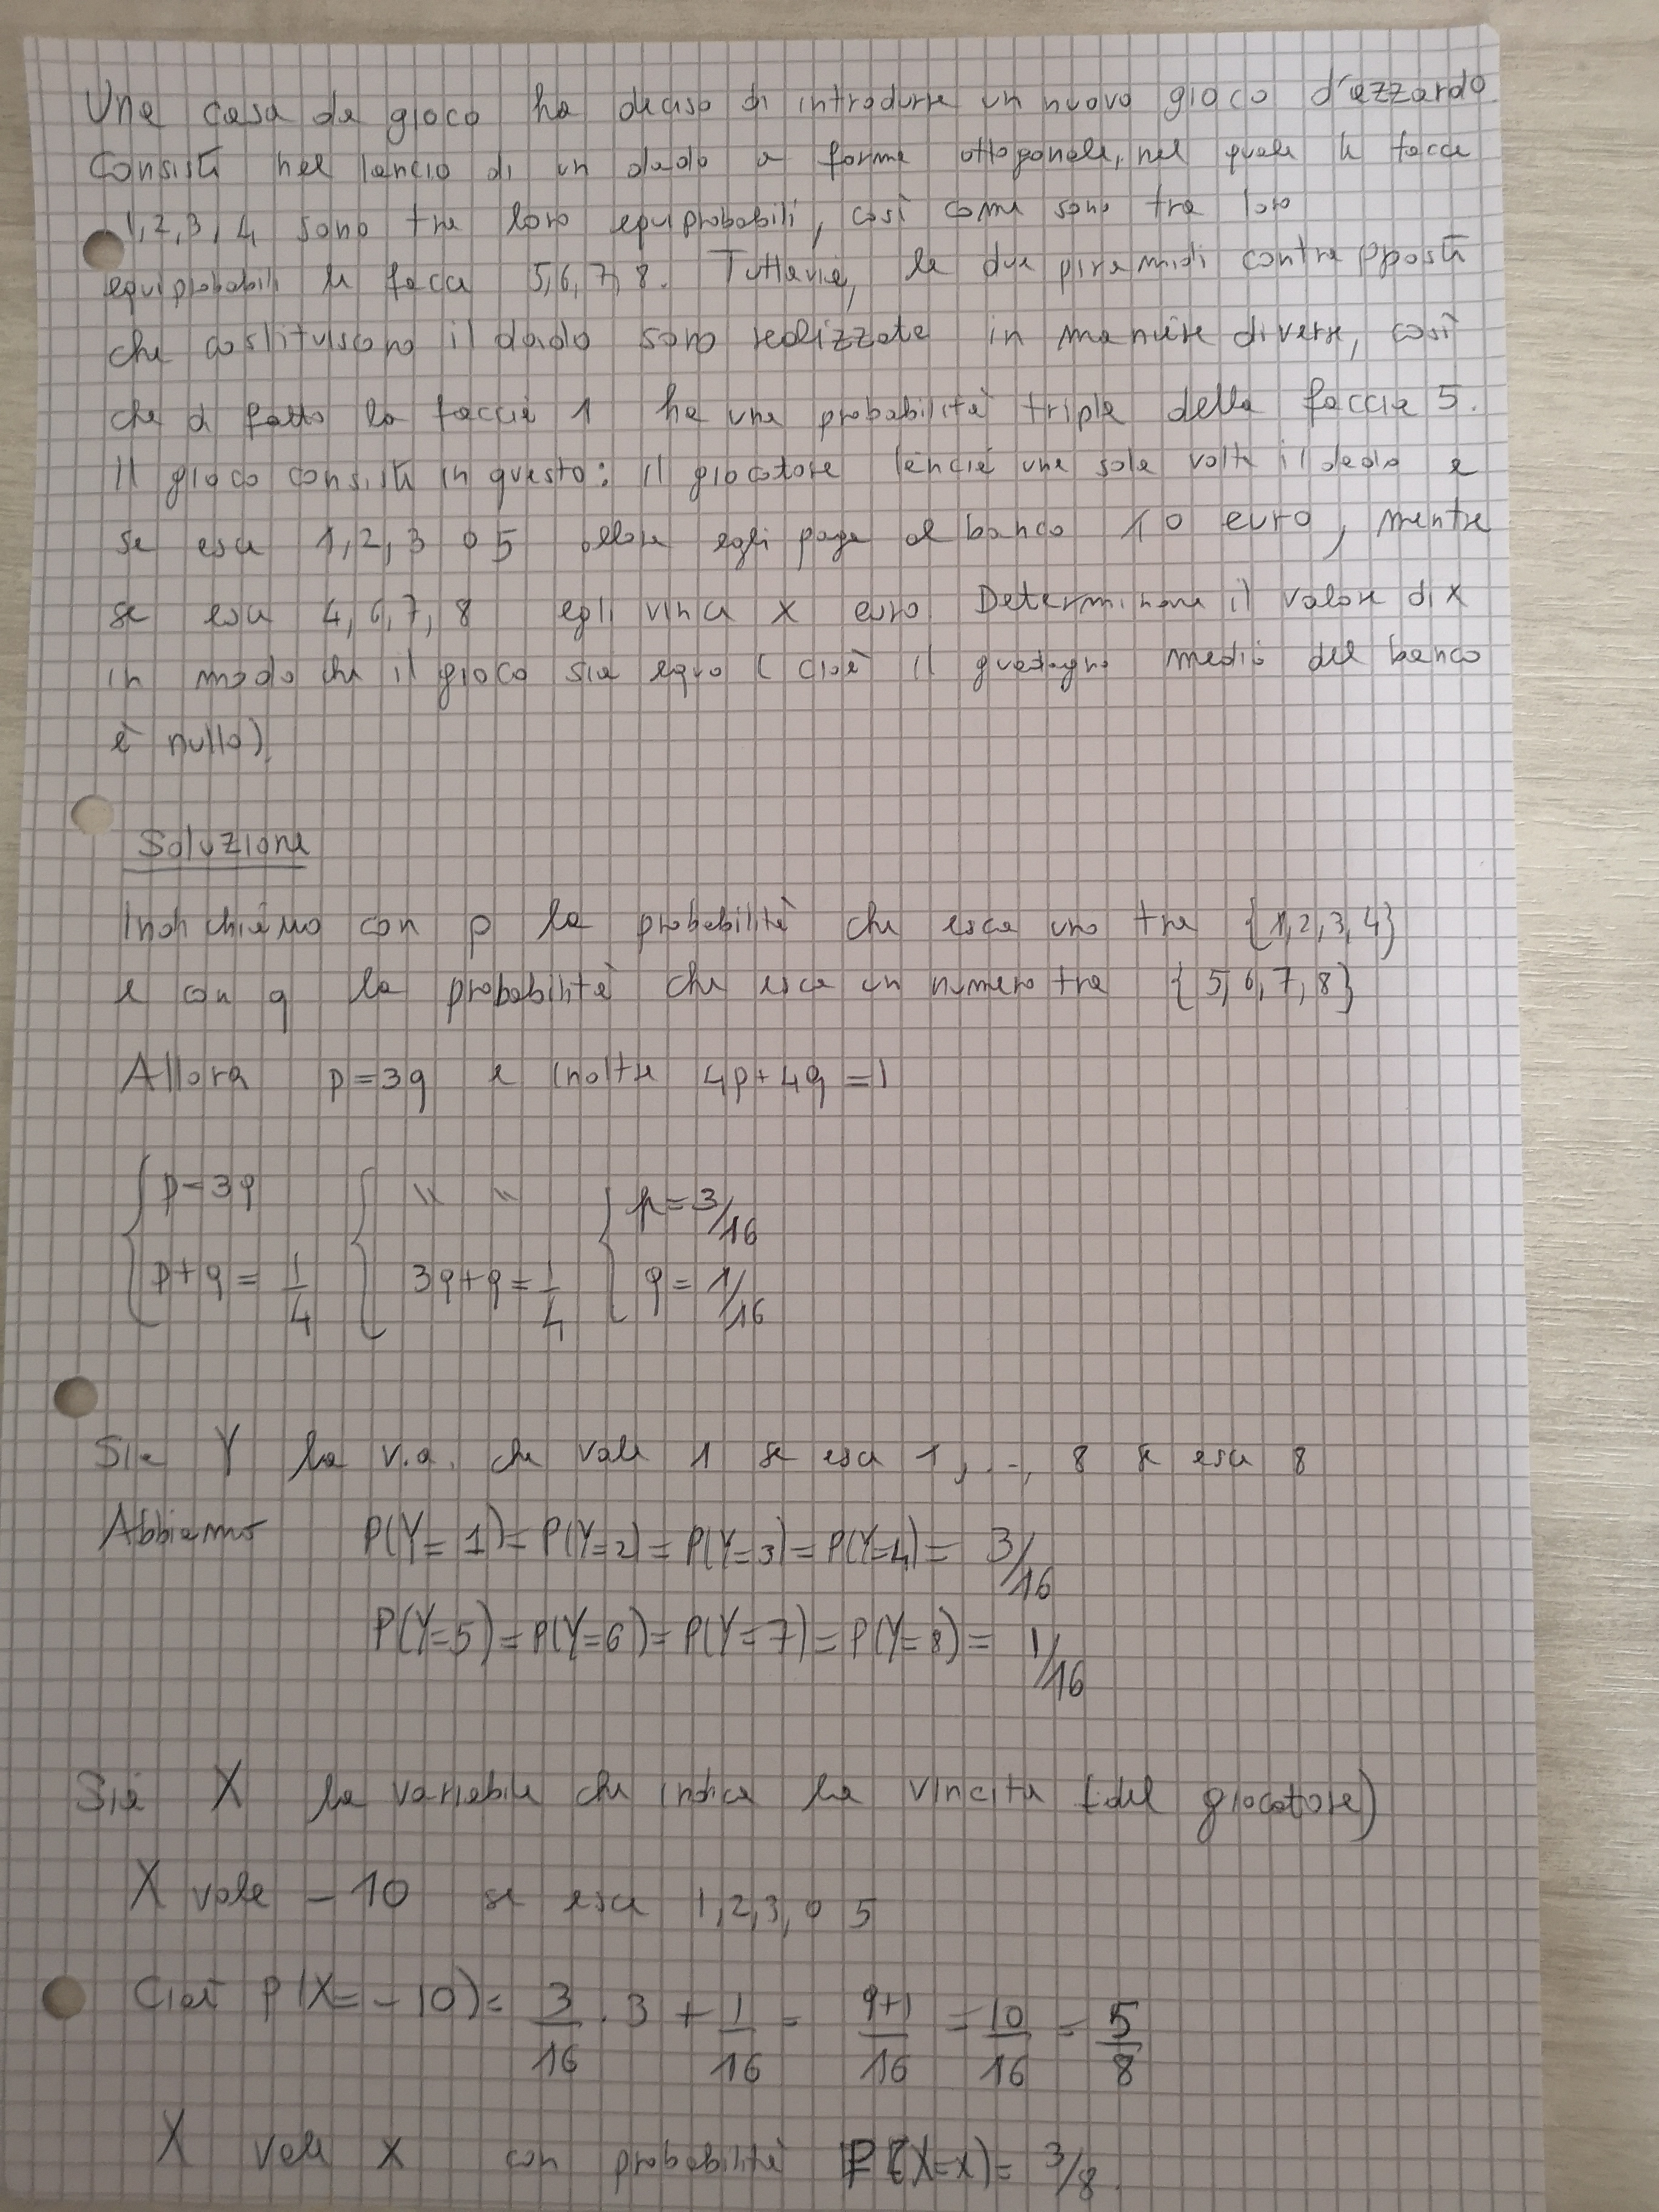 Una casa da gioco ha deciso di introdurre un nuovo gioco d'azzardo.
Consiste nel lancio di un dado a forma ottagonale, nel quale le facce
1, 2, 3, 4 sono tra loro equiprobabili, così come sono tra loro
equiprobabili le facce 5, 6, 7, 8. Tuttavia, le due piramidi contrapposte
che costituiscono il dado sono realizzate in maniera diversa, così
che di fatto la faccia 1 ha una probabilità tripla della faccia 5.
Il gioco consiste in questo: il giocatore lancia una sola volta il dado e
se esce 1, 2, 3 o 5 allora egli paga al banco 10 euro, mentre
se esce 4, 6, 7, 8 egli vince x euro. Determinare il valore di x
in modo che il gioco sia equo (cioè il guadagno medio del banco
è nullo).
Soluzione
Indichiamo con p la probabilità che esca uno tra {1,2,3,4}
e con q la probabilità che esca un numero tra {5,6,7,8}
Allora p=3q e inoltre 4p+4q=1
{ p=3q { " " { p=3/16
{ p+q = 1/4 { 3q+q = 1/4 { q = 1/16
Sia Y la v.a. che vale 1 se esce 1, .., 8 se esce 8
Abbiamo P(Y=1)=P(Y=2)=P(Y=3)=P(Y=4)= 3/16
P(Y=5)=P(Y=6)=P(Y=7)=P(Y=8)= 1/16
Sia X la variabile che indica la vincita (del giocatore)
X vale -10 se esce 1,2,3, o 5
Cioè P(X=-10)= 3/16 . 3 + 1/16 = 9+1/16 = 10/16 = 5/8
X vale x con probabilità P(X=x)= 3/8.